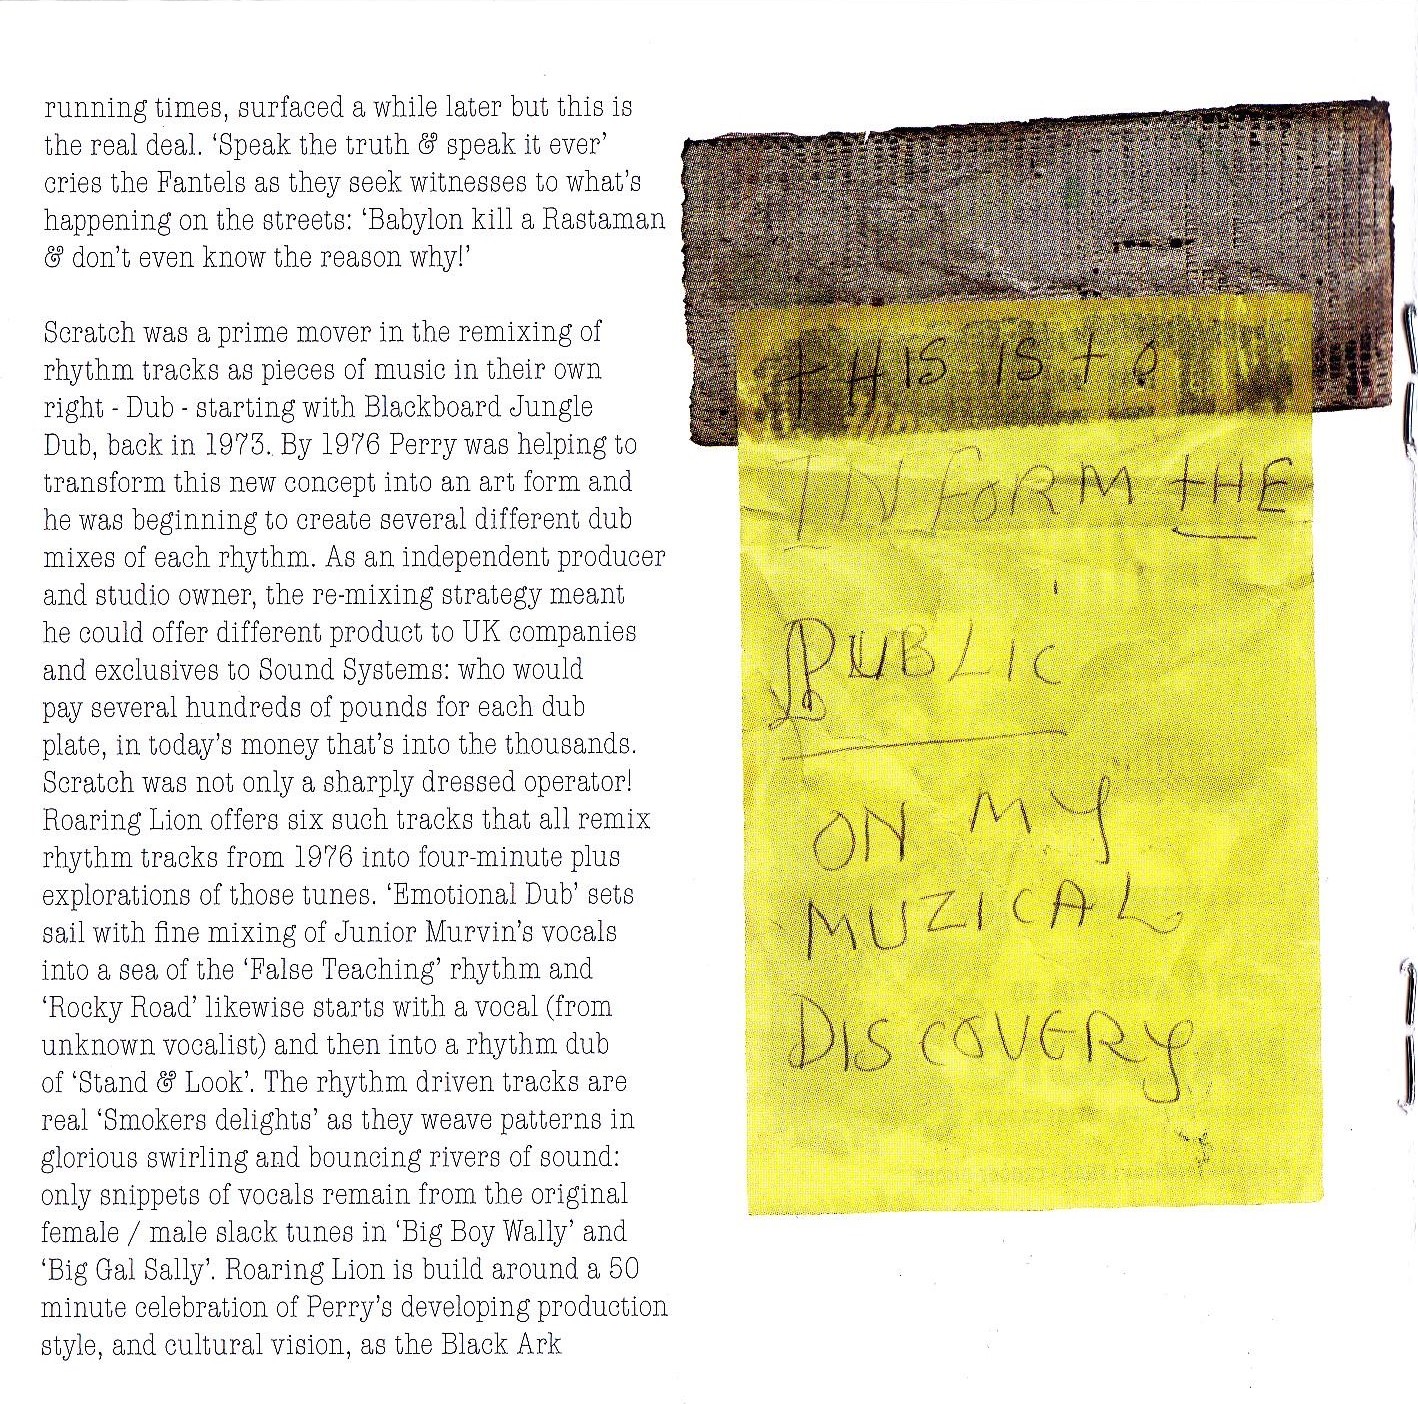 running times, surfaced a while later but this is
the real deal. ‘Speak the truth & speak it ever’
cries the Fantels as they seek witnesses to what’s
happening on the streets: ‘Babylon kill a Rastaman
& don’t even know the reason why!’
Scratch was a prime mover in the remixing of
rhythm tracks as pieces of music in their own
right - Dub - starting with Blackboard Jungle
Dub, back in 1973. By 1976 Perry was helping to
transform this new concept into an art form and
he was beginning to create several different dub
mixes of each rhythm. As an independent producer
and studio owner, the re-mixing strategy meant
he could offer different product to UK companies
and exclusives to Sound Systems: who would
pay several hundreds of pounds for each dub
plate, in today’s money that’s into the thousands.
Scratch was not only a sharply dressed operator!
Roaring Lion offers six such tracks that all remix
rhythm tracks from 1976 into four-minute plus
explorations of those tunes. ‘Emotional Dub’ sets
sail with fine mixing of Junior Murvin’s vocals
into a sea of the ‘False Teaching’ rhythm and
‘Rocky Road’ likewise starts with a vocal (from
unknown vocalist) and then into a rhythm dub
of ‘Stand & Look’. The rhythm driven tracks are
real ‘Smokers delights’ as they weave patterns in
glorious swirling and bouncing rivers of sound:
only snippets of vocals remain from the original
female / male slack tunes in ‘Big Boy Wally’ and
‘Big Gal Sally’. Roaring Lion is build around a 50
minute celebration of Perry’s developing production
style, and cultural vision, as the Black Ark
THIS IS TO
INFORM THE
PUBLIC
ON MY
MUZICAL
DISCOVERY